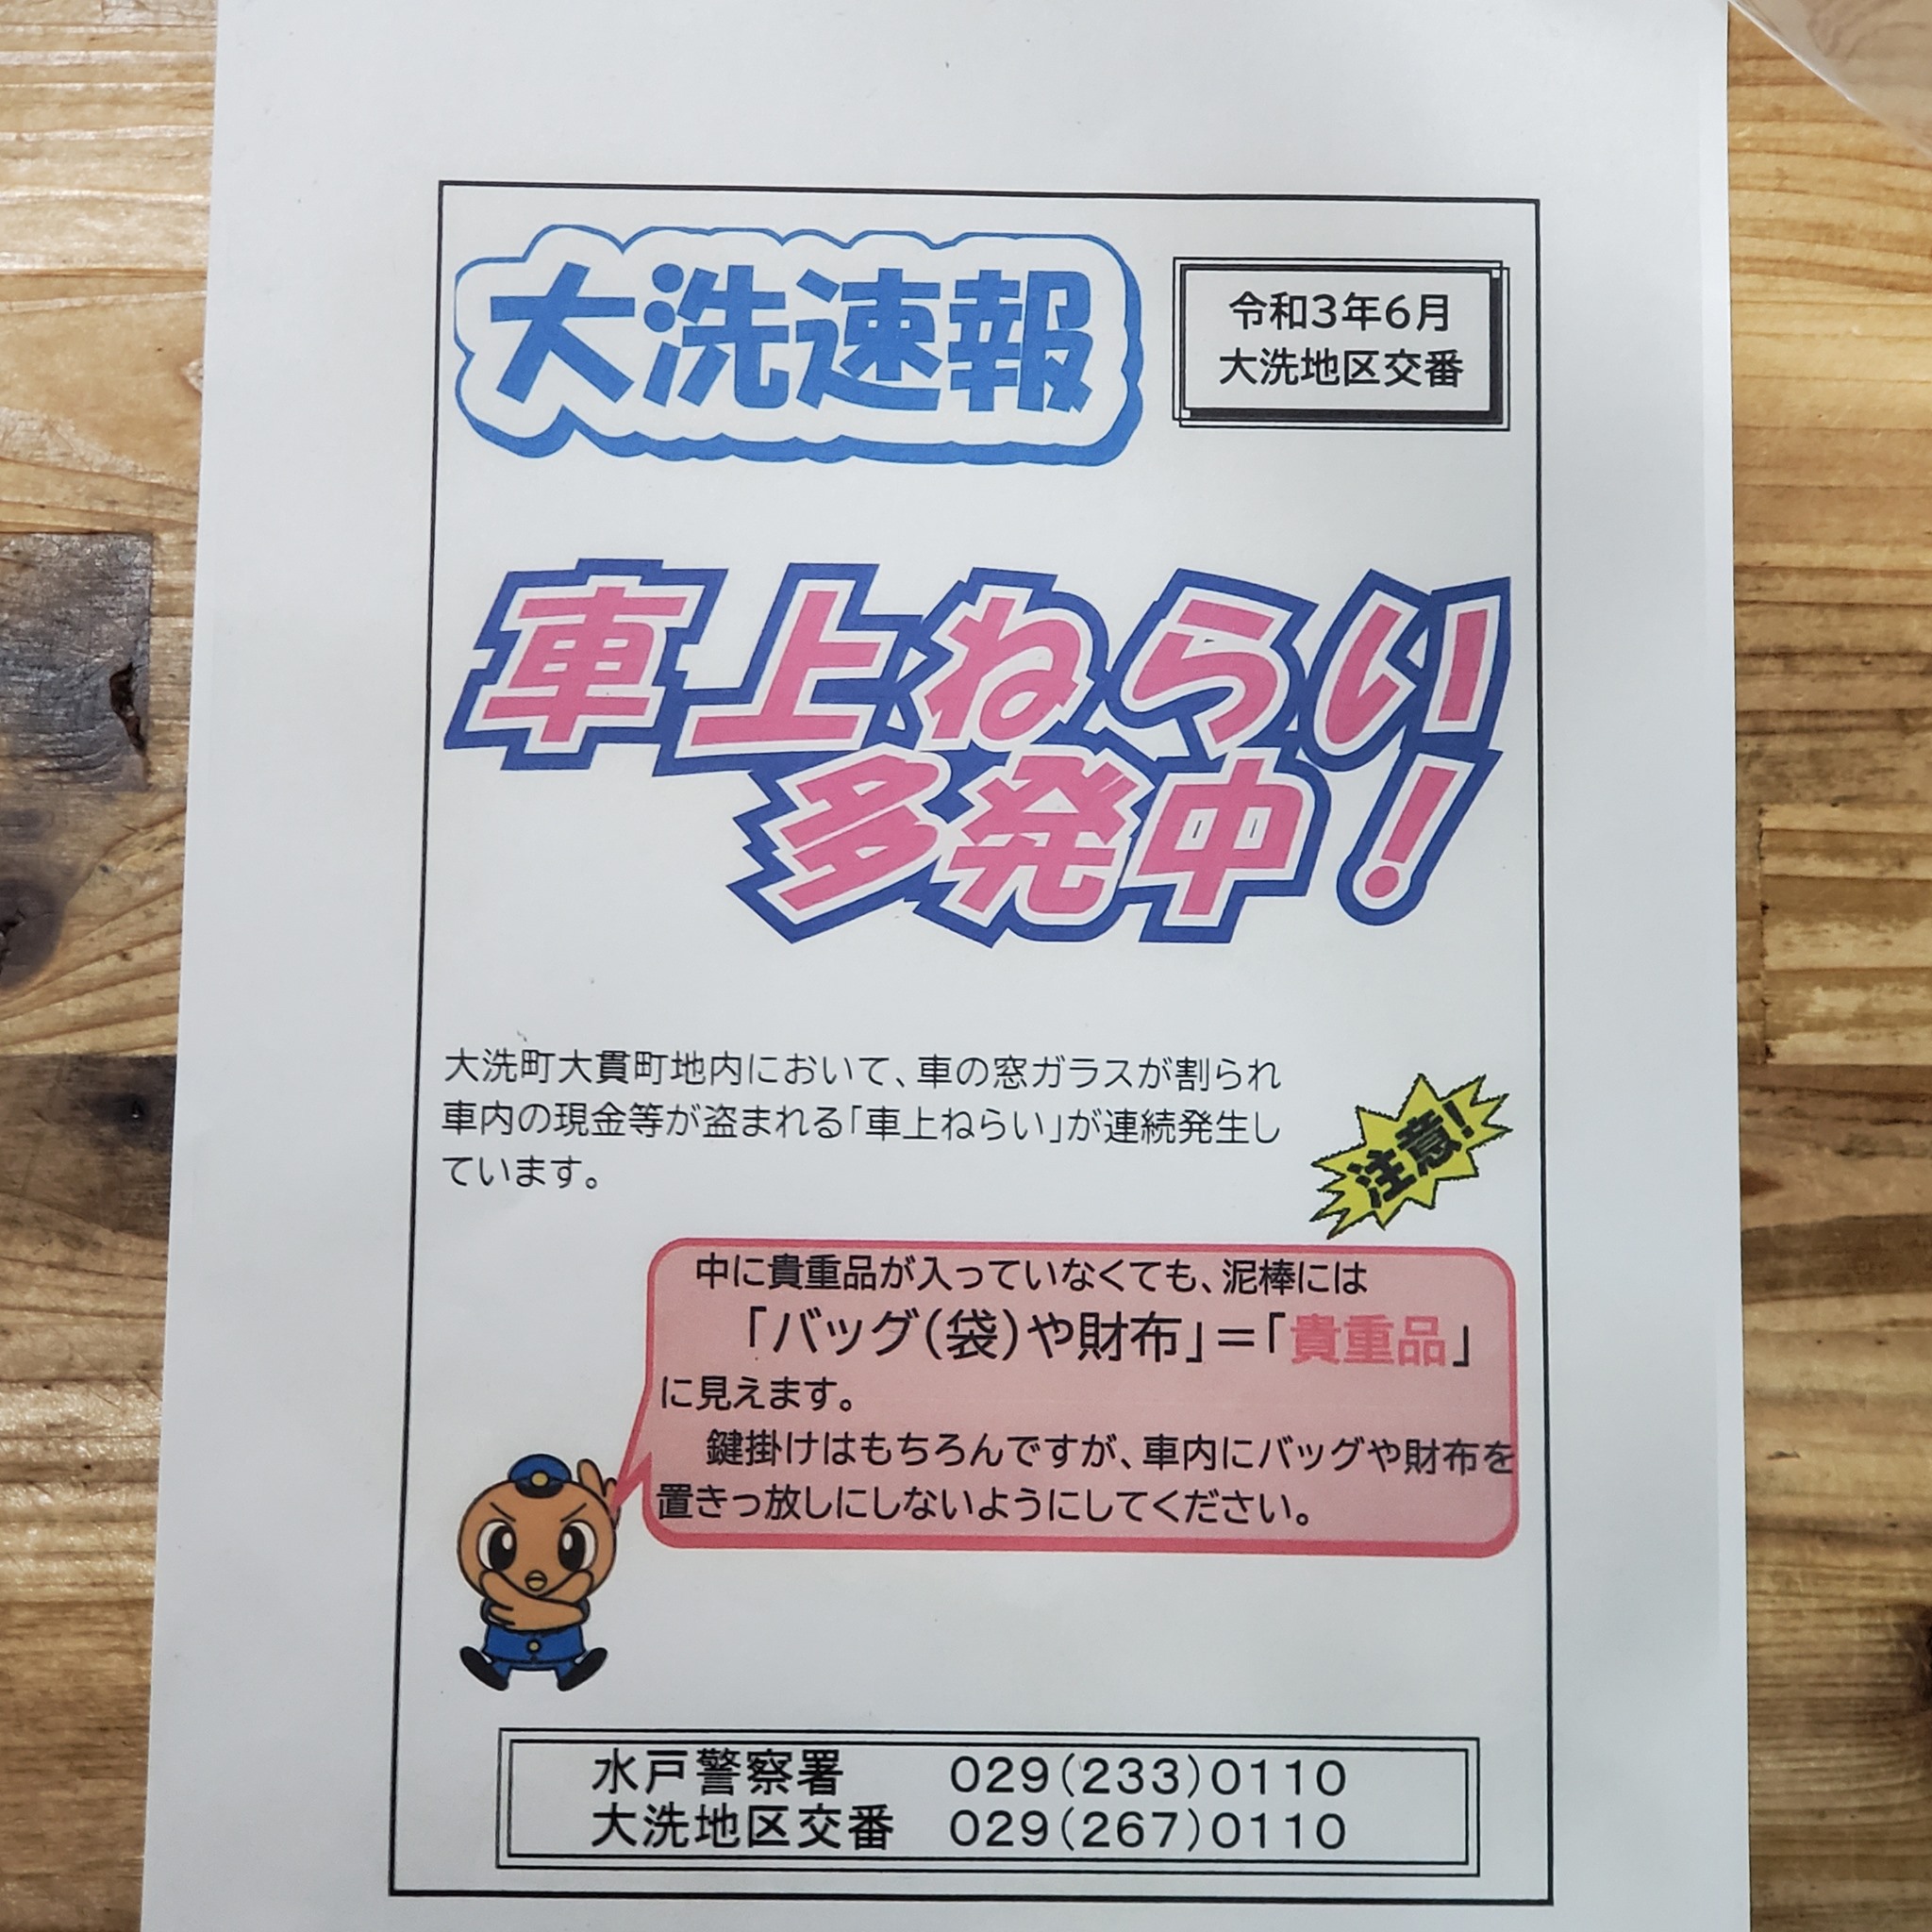 大洗速報
令和3年6月
大洗地区交番
車上ねらい
多発中!
大洗町大貫町地内において、車の窓ガラスが割られ
車内の現金等が盗まれる「車上ねらい」が連続発生し
ています。
注意!
中に貴重品が入っていなくても、泥棒には
「バッグ(袋)や財布」=「貴重品」
に見えます。
鍵掛けはもちろんですが、車内にバッグや財布を
置きっ放しにしないようにしてください。
水戸警察署 029(233)0110
大洗地区交番 029(267)0110